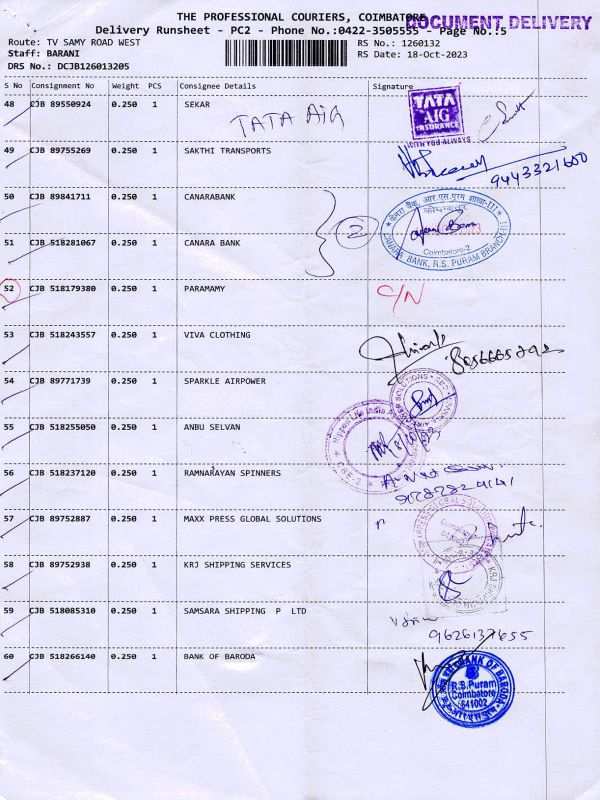 THE PROFESSIONAL COURIERS, COIMBATORE
DOCUMENT DELIVERY
Delivery Runsheet - PC2 - Phone No.:0422-3505555 - Page No.:5
Route: TV SAMY ROAD WEST RS No.: 1260132
Staff: BARANI RS Date: 18-Oct-2023
DRS No.: DCJB126013205
S No Consignment No Weight PCS Consignee Details Signature
48 CJB 89550924 0.250 1 SEKAR
TATA AIG
TATA
AIG
INSURANCE
WITH YOU ALWAYS
49 CJB 89755269 0.250 1 SAKTHI TRANSPORTS
9443321600
50 CJB 89841711 0.250 1 CANARABANK
2
51 CJB 518281067 0.250 1 CANARA BANK
Coimbatore-2
CANARA BANK, R.S. PURAM BRANCH
52 CJB 518179380 0.250 1 PARAMAMY C/N
53 CJB 518243557 0.250 1 VIVA CLOTHING
54 CJB 89771739 0.250 1 SPARKLE AIRPOWER
55 CJB 518255050 0.250 1 ANBU SELVAN
56 CJB 518237120 0.250 1 RAMNARAYAN SPINNERS
57 CJB 89752887 0.250 1 MAXX PRESS GLOBAL SOLUTIONS
58 CJB 89752938 0.250 1 KRJ SHIPPING SERVICES
59 CJB 518085310 0.250 1 SAMSARA SHIPPING P LTD
9626137655
60 CJB 518266140 0.250 1 BANK OF BARODA
BANK OF BARODA
R.S.Puram
Coimbatore
641002